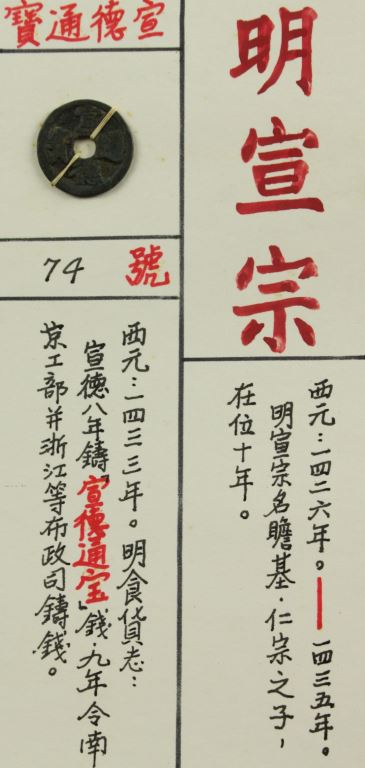 明宣宗
西元：一四二六年。——一四三五年。
明宣宗名瞻基．仁宗之子，
在位十年。
宣德通寶
74 號
西元：一四三三年。明食貨志：
宣德八年鑄「宣德通宝」錢．九年令南
京工部并浙江等布政司鑄錢。